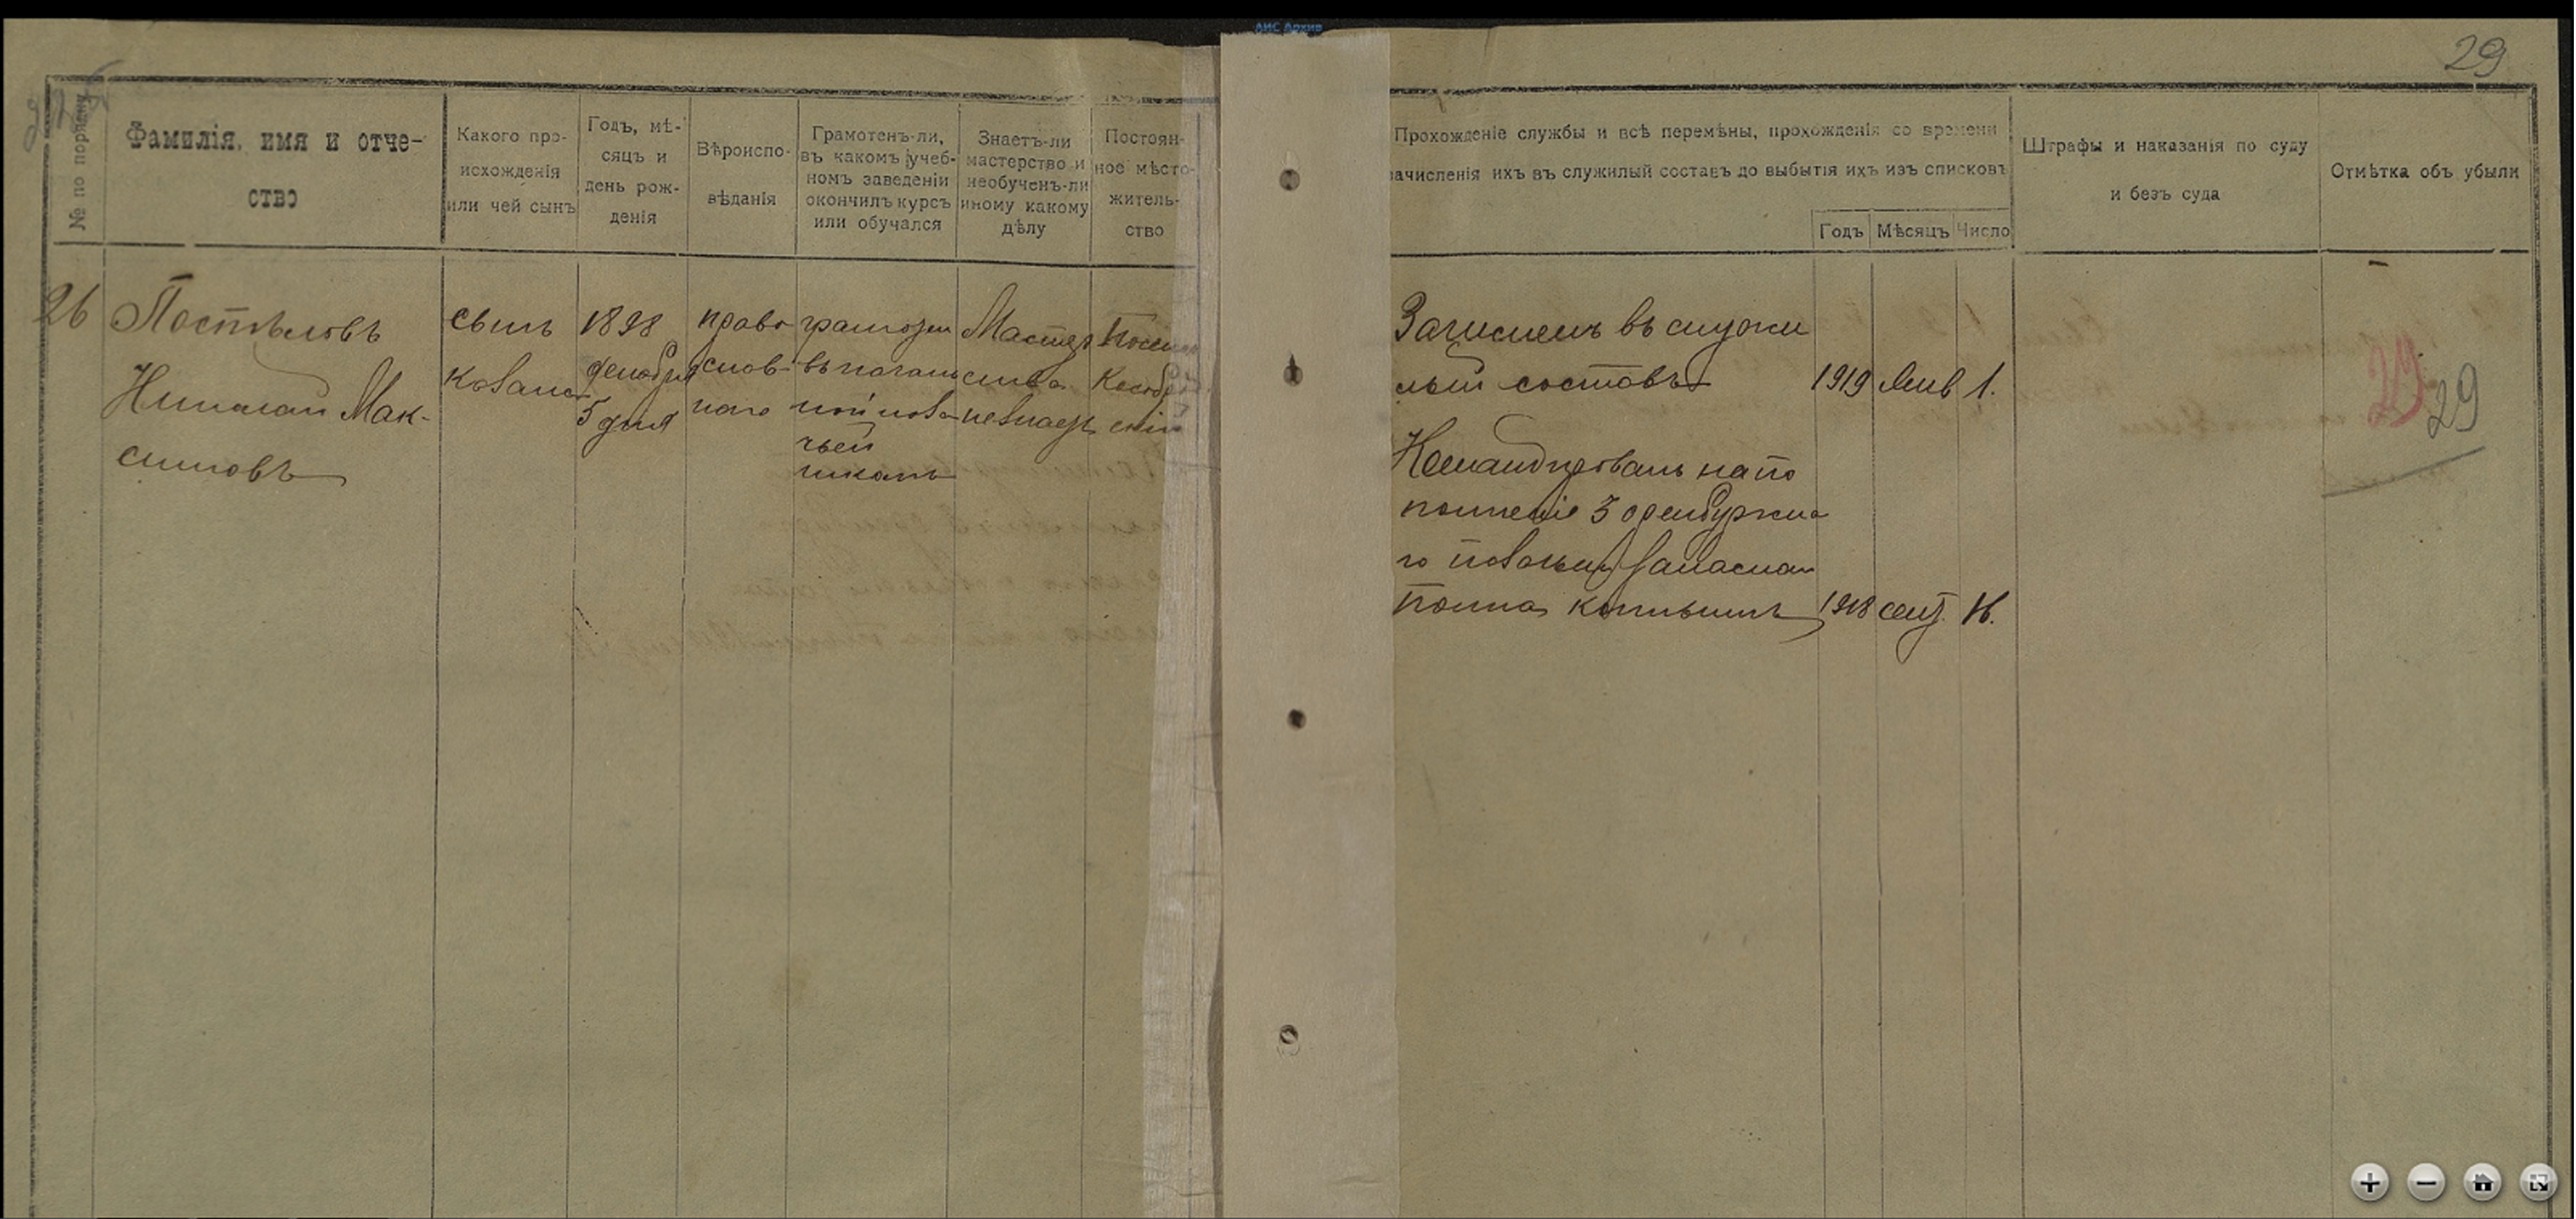 АИС Архив
29
№ по порядку
Фамилія, имя и отче-
ство
Какого про-
исхожденія
или чей сынъ
Годъ, мѣ-
сяцъ и
день рож-
денія
Вѣроиспо-
вѣданія
Грамотенъ-ли,
въ какомъ учеб-
номъ заведеніи
окончилъ курсъ
или обучался
Знаетъ-ли
мастерство и
необученъ-ли
иному какому
дѣлу
Постоян-
ное мѣсто-
житель-
ство
Прохожденіе службы и всѣ перемѣны, прохожденія со времени
зачисленія ихъ въ служилый составъ до выбытія ихъ изъ списковъ
Годъ Мѣсяцъ Число
Штрафы и наказанія по суду
и безъ суда
Отмѣтка объ убыли
26
Постѣловъ
Николай Мак-
симовъ
сынъ
казака
1898
декабря
5 дня
право
слов-
наго
грамотен
въ началь
ной каза
чьей
школѣ
Мастер
ства
незнаетъ
Посел
Кособрод
скій
Зачисленъ въ служи
лый составъ 1919 Янв 1.
Командированъ на по
полненіе 3 оренбургска
го казачьяго запаснаго
полка 1918 сент.
29
29